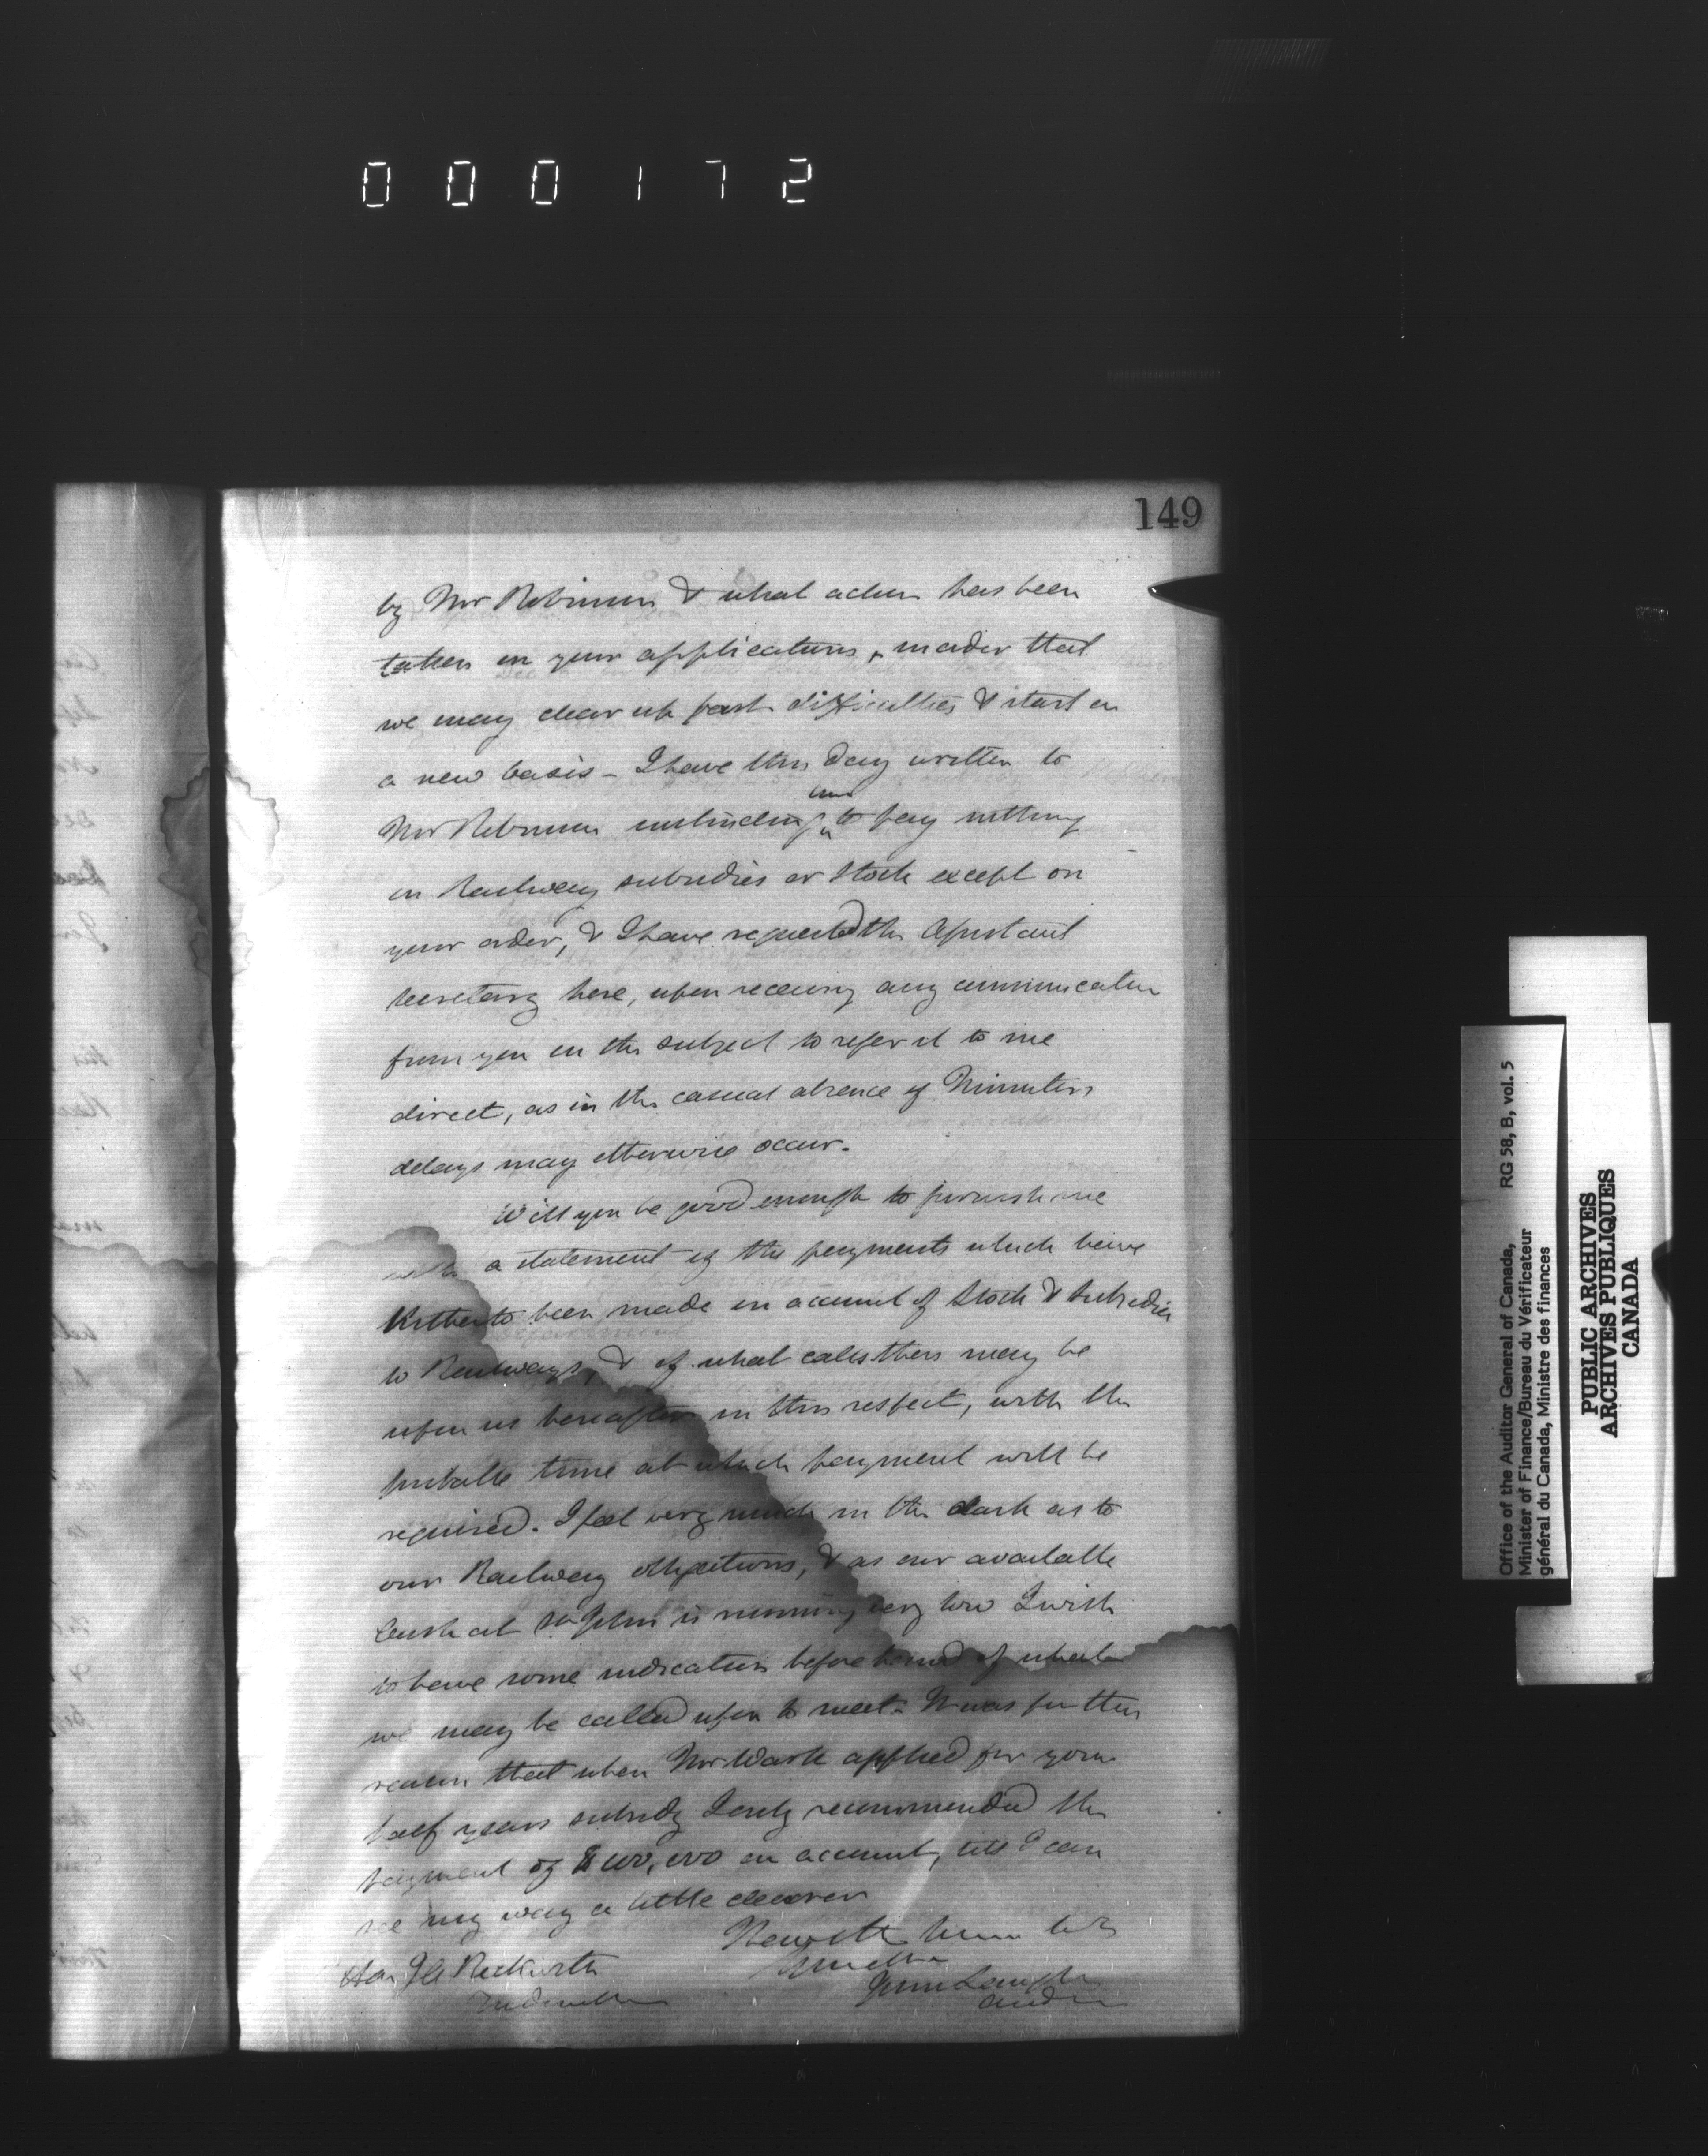 000172
149
by Mr Robinson & what action has been
taken on your applications, in order that
we may clear up past difficulties & start on
a new basis – I have this day written to
him
Mr Robinson instructing to pay nothing
on Railway subsidies or Stock except on
your order, & I have requested the Assistant
Secretary here, upon receiving any communication
from you on the subject to refer it to me
direct, as in the casual absence of Ministers
delays may otherwise occur.
Will you be good enough to furnish me
with a statement of the payments which have
hitherto been made on account of Stock & Subsidies
to Railways, & of what calls there may be
upon us hereafter in this respect, with the
probable time at which payment will be
required. I feel very much in the dark as to
our Railway obligations, & as our available
Cash at St John is running very low I wish
to have some indication beforehand of what
we may be called upon to meet. It was for this
reason that when Mr Wark applied for your
half years subsidy I only recommended the
payment of $100,000 on account, till I can
see my way a little clearer
Hon
John Langton
Auditor
Office of the Auditor General of Canada,
Minister of Finance/Bureau du Vérificateur
général du Canada, Ministre des finances
RG 58, B, vol. 5
PUBLIC ARCHIVES
ARCHIVES PUBLIQUES
CANADA